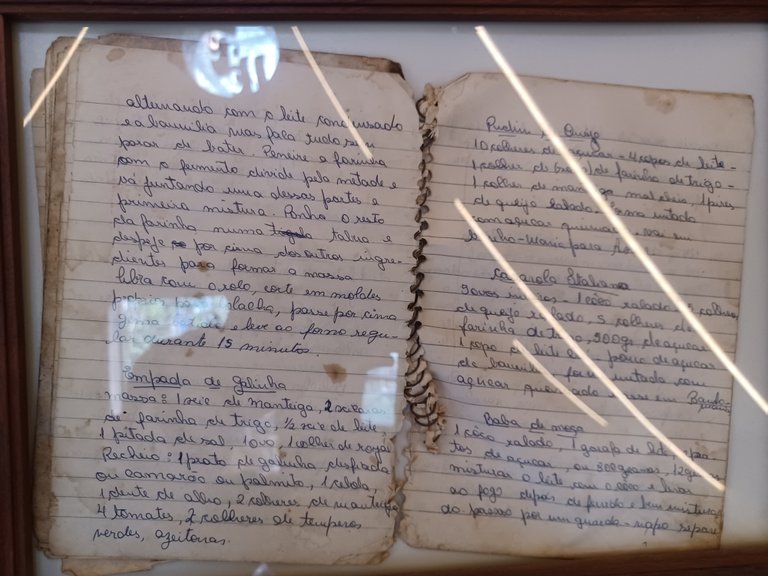 alternando com o leite condensado
e a baunilia mas faça tudo sem
parar de bater. Peneire a farinha
com o fermento divide pela metade e
vá juntando uma dessas partes a
primeira mistura. Ponha o resto
da farinha numa tabua e
despeje por cima dos outros ingre-
dientes para formar a massa
abra com o rolo, corte em moldes
bolacha, passe por cima
gema e leve ao forno regu-
lar durante 15 minutos.
Empada de galinha
massa: 1 xic de manteiga, 2 xicaras
de farinha de trigo, ½ xic de leite
1 pitada de sal 1 ovo, 1 colher de royal
Recheio: 1 prato de galinha desfiada
ou camarão ou palmito, 1 cebola,
1 dente de alho, 2 colheres de manteiga
4 tomates, 2 colheres de temperos
verdes, azeitonas.
Pudim Queijo
10 colheres de açucar - 4 copos de leite -
1 colher de farinha de trigo -
1 colher de manteiga mal cheia, 1 pires
de queijo ralado - forma untada
com açucar queimado - vai em
banho-Maria para
Caçarola Italiana
9 ovos - 1 côco ralado, 5 colheres
de queijo ralado, 5 colheres de
farinha de trigo, 900grs de açucar
1 copo de leite pouco de açucar
de baunilha - forma untada com
açucar queimado - em Banho
Baba de moça
1 côco ralado, 1 garrafa de leite,
de açucar, ou 800 gramas, 12
misturar o leite com o côco e levar
ao fogo depois de fervido e bem misturado
por um guardanapo